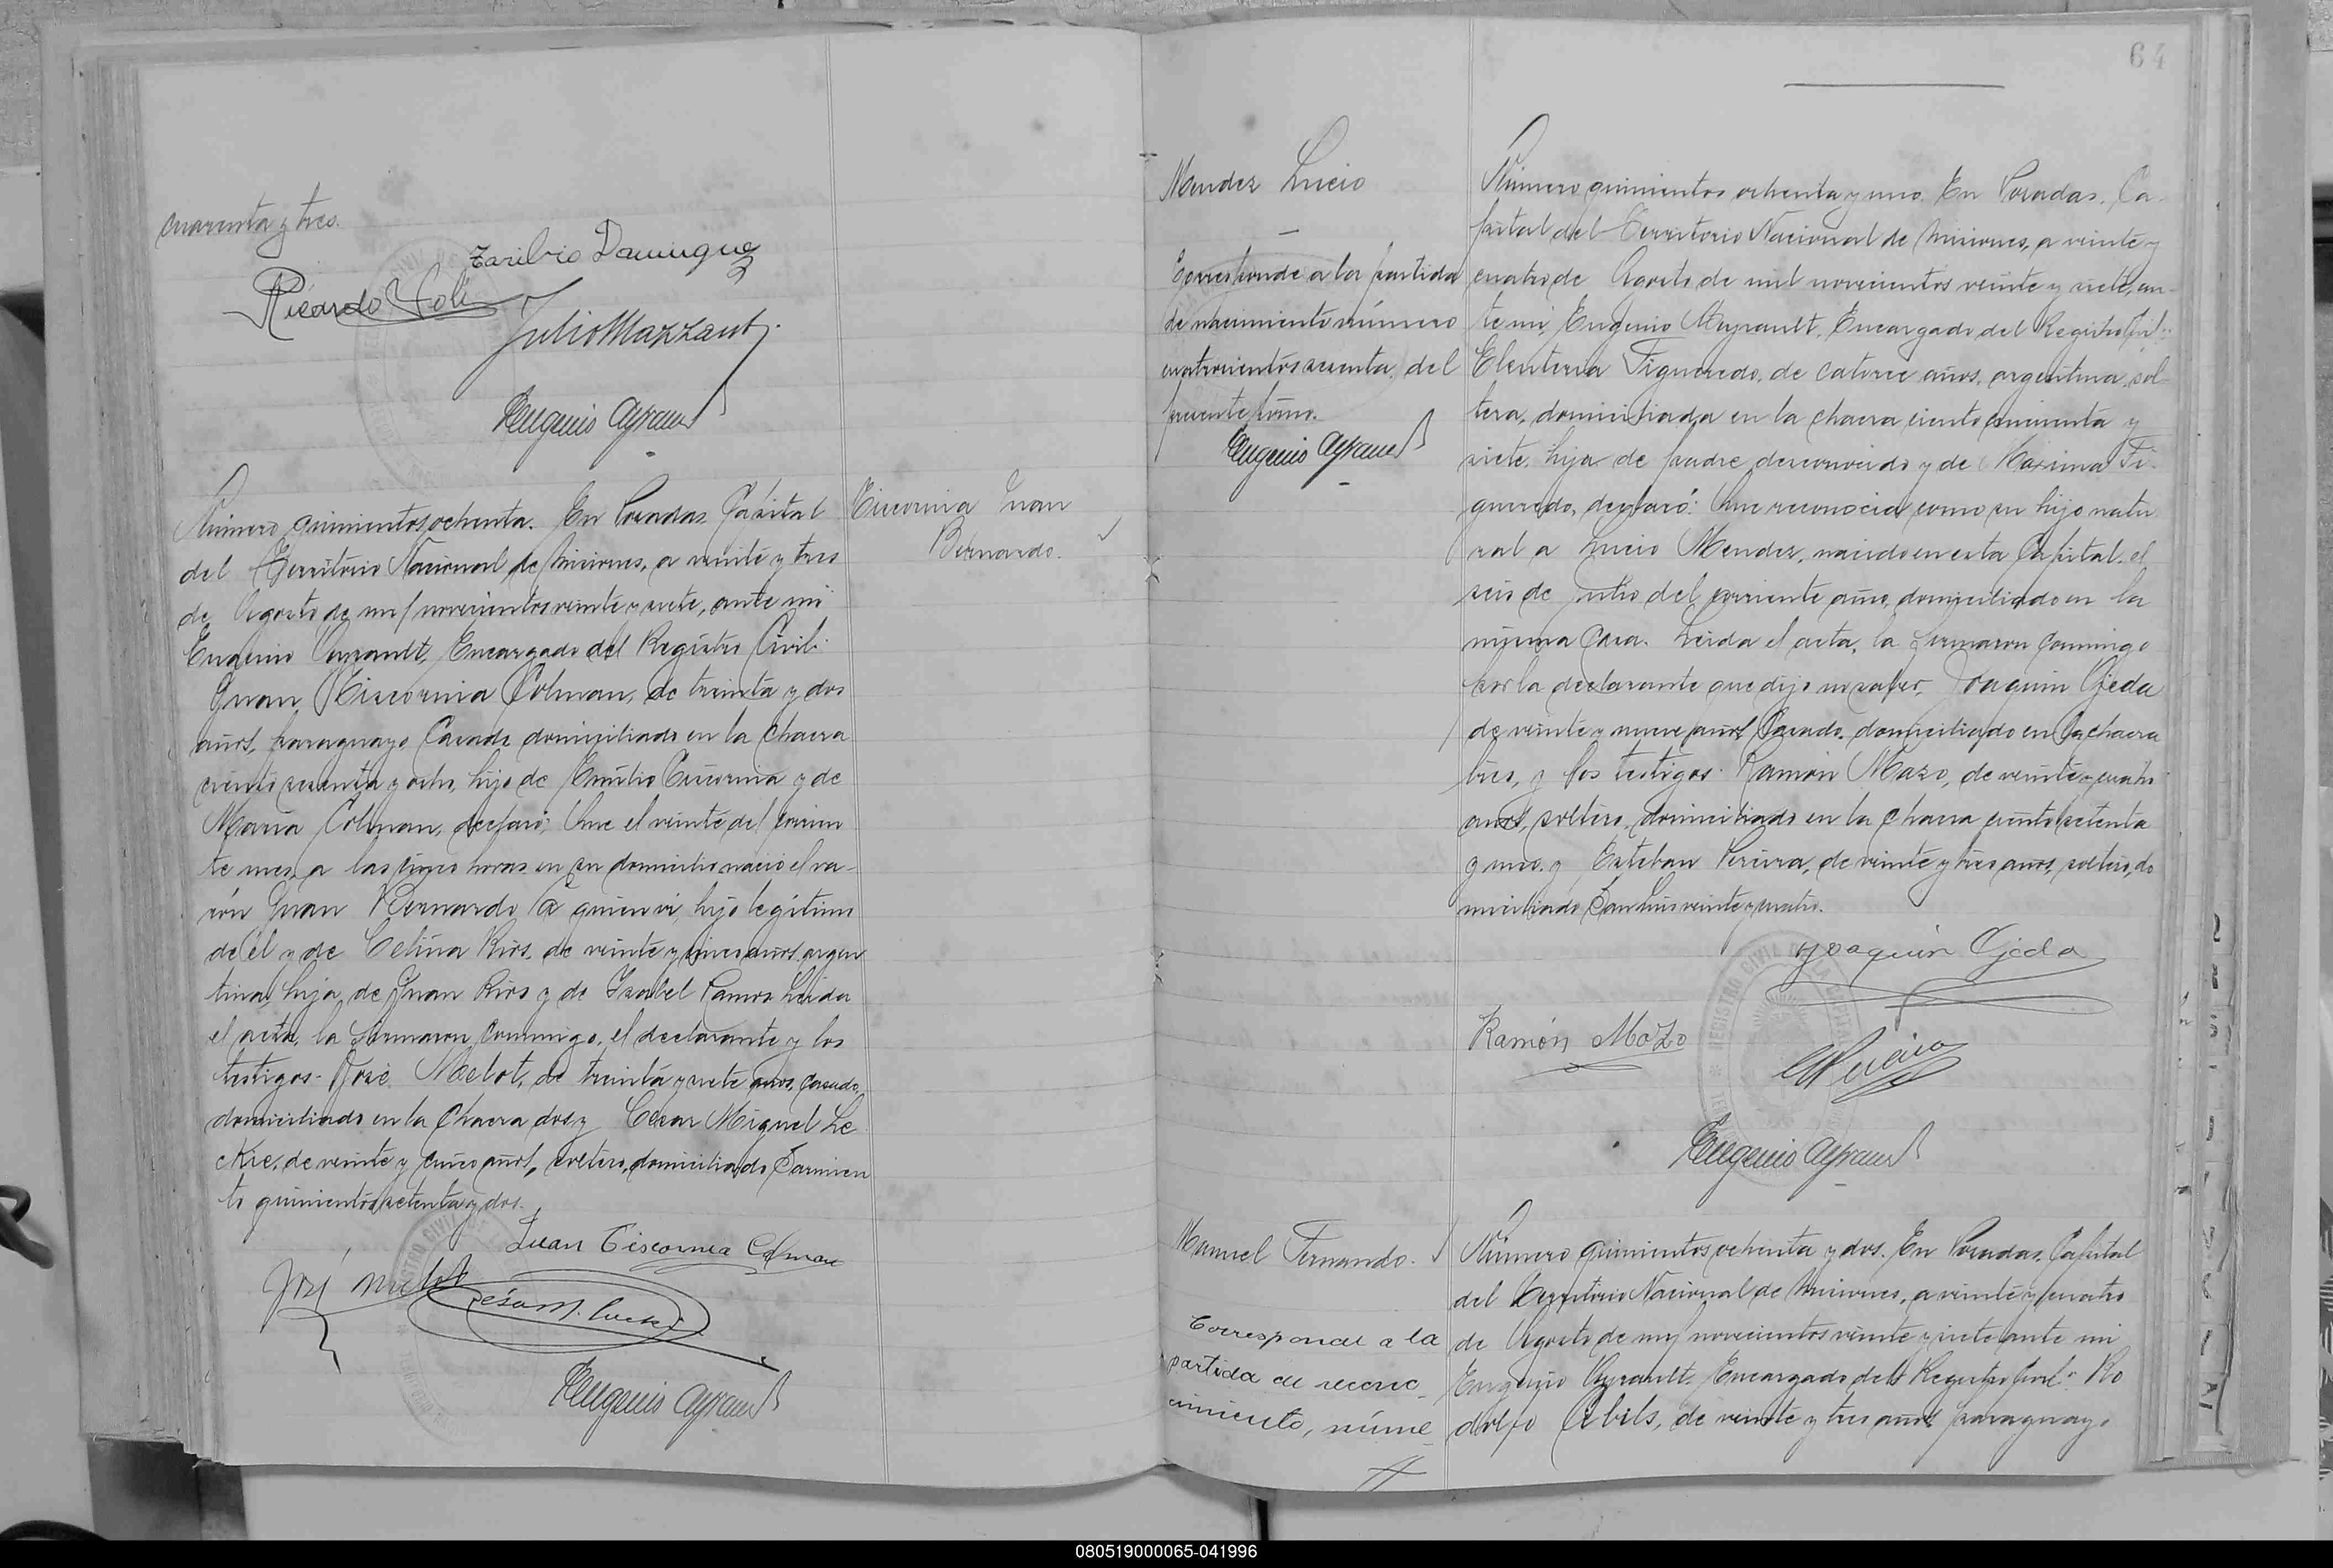 cuarenta y tres.
Toribio Domingue
Ricardo
Julio Mazzanti.
Eugenio Ayrault
Número quinientos ochenta. En Posadas, Capital
del Territorio Nacional de Misiones, a veinte y tres
de Agosto de mil novecientos veinte y siete, ante mi
Eugenio Ayrault, Encargado del Registro Civil:
Juan Ciscornia Colman, de treinta y dos
años, paraguayo, Casado domiciliado en la Chacra
ciento sesenta y ocho, hijo de Emilio Ciscornia y de
María Colman, declaró: Que el veinte del corrien
te mes, a las cinco horas en su domicilio nació el va-
rón Juan Bernardo a quien vi, hijo legitimo
de él y de Celina Rios, de veinte y cinco años, argen
tina, hija de Juan Rios y de Isabel Ramos. Leida
el acta, la firmaron conmigo, el declarante y los
testigos: José Melot, de treinta y siete años, casado,
domiciliado en la Chacra dos y Cesar Miguel Le
ckie, de veinte y cinco años, soltero, domiciliado Sarmien
to quinientos setenta y dos.
Juan Ciscornia Colman
José Melot
Cesar M. Leckie
Eugenio Ayrault
Ciscornia Juan
Bernardo.
64
Mendez Lucio
Corresponde a la partida
de nacimiento número
cuatrocientos sesenta, del
presente tomo.
Eugenio Ayrault
Número quinientos ochenta y uno. En Posadas, Ca-
pital del Territorio Nacional de Misiones, a veinte y
cuatro de Agosto de mil novecientos veinte y siete, an-
te mi, Eugenio Ayrault, Encargado del Registro Civil:
Eleuteria Figueredo, de catorce años, argentina, sol
tera, domiciliada en la chacra ciento cincuenta y
siete, hija de padre desconocido y de Maxima Fi-
gueredo, declaró: Que reconocia como su hijo natu
ral a Lucio Mendez, nacido en esta Capital, el
seis de Julio del corriente año, domiciliado en la
misma Casa. Leida el acta, la firmaron conmigo
por la declarante que dijo no saber, Joaquin Ojeda
de veinte y nueve años Casado, domiciliado en la chacra
tres, y los testigos: Ramón Mazo, de veinte y cuatro
años, soltero, domiciliado en la Chacra ciento setenta
y uno, y Esteban Pereira, de veinte y tres años, soltero, do
miciliado San Luis veinte y cuatro.
Joaquin Ojeda
Ramón Mozo
Eugenio Ayrault
REGISTRO CIVIL
Manuel Fernando.
Corresponde a la
partida de recono_
cimiento, núme_
Número quinientos ochenta y dos. En Posadas, Capital
del Territorio Nacional de Misiones, a veinte y cuatro
de Agosto de mil novecientos veinte y siete ante mi
Eugenio Ayrault, Encargado del Registro Civil: Ro
dolfo Abils, de veinte y tres años, paraguayo
080519000065-041996